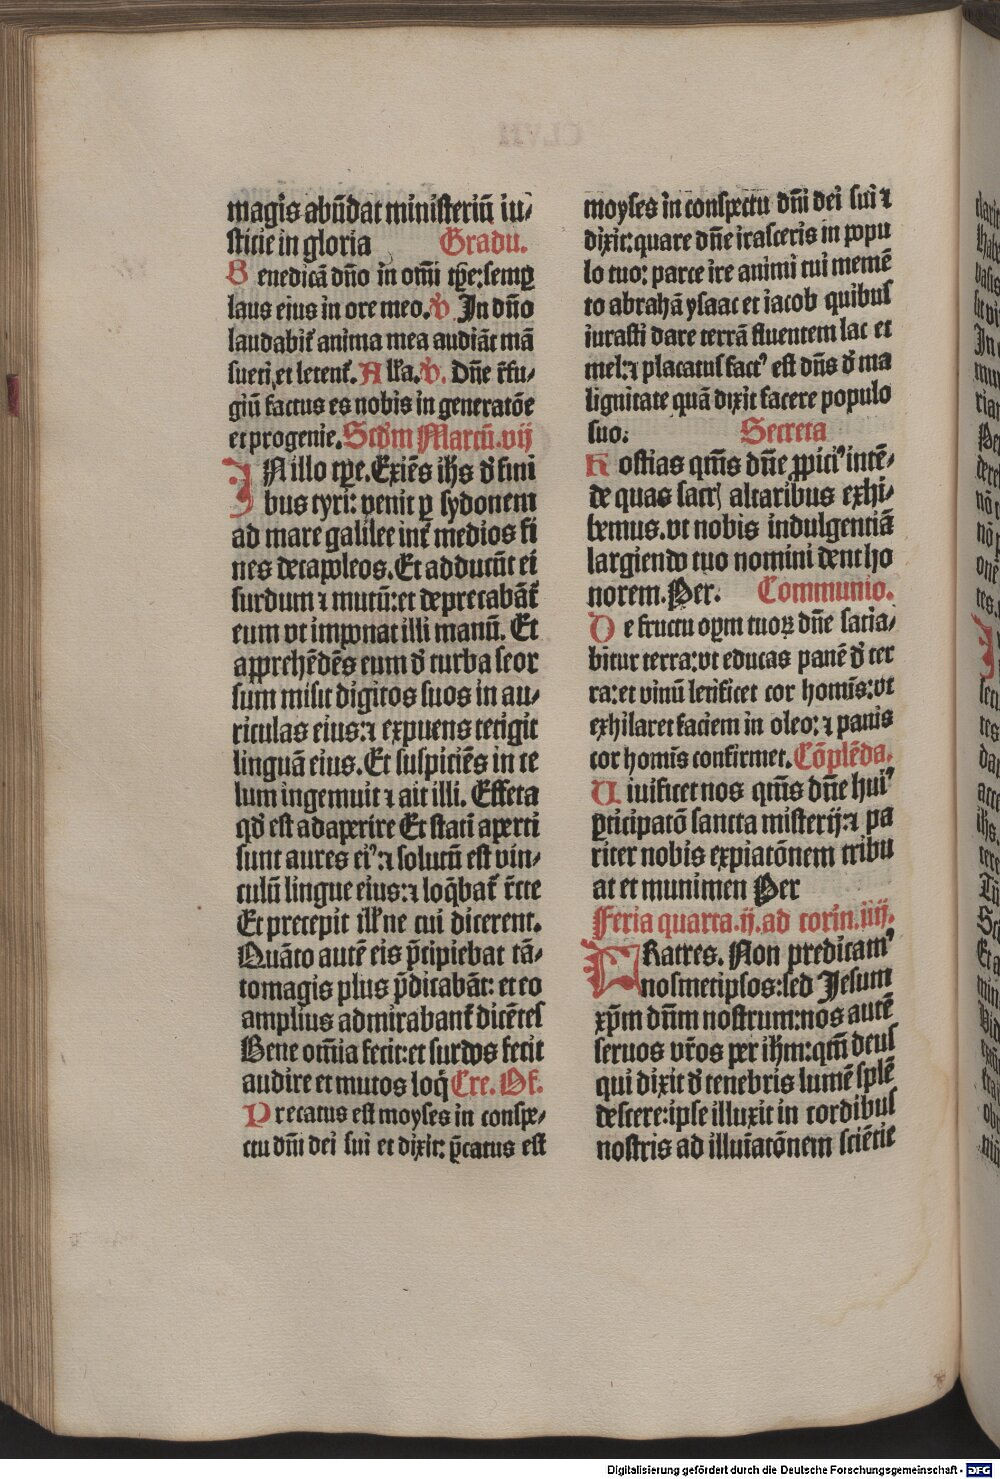 magis abūdat ministeriū iu/
sticie in gloria Gradu.
Benedicā dño in om̄i tp̄e: semꝑ
laus eius in ore meo. ℣. In dño
laudabit᷑ anima mea audiāt mā
sueti, et letent᷑. Alľa. ℣. Dñe r̄fu/
giū factus es nobis in generatōe
et progenie. Scd̄m Marcū. vij
IN illo tp̄e. Exiēs ih̄s d̄ fini
bus tyri: venit ꝑ sydonem
ad mare galilee int᷑ medios fi
nes decapoleos. Et adducūt ei
surdum ⁊ mutū: et deprecabāt᷑
eum vt imponat illi manū. Et
apprehēdēs eum d̄ turba seor
sum misit digitos suos in au/
riculas eius: ⁊ expuens tetigit
linguā eius. Et suspiciēs in ce
lum ingemuit ⁊ ait illi. Effeta
qd̄ est adaperire Et stati aperti
sunt aures eiꝰ: ⁊ solutū est vin/
culū lingue eius: ⁊ loq̄bat᷑ r̄cte
Et precepit ill᷑ ne cui dicerent.
Quāto autē eis p̄cipiebat tā/
tomagis plus p̄dicabāt: et eo
amplius admirabant᷑ dicētes
Bene om̄ia fecit: et surdos fecit
audire et mutos loq̄ Cre. Of.
Precatus est moyses in conspe/
ctu dn̄i dei sui et dixit: p̄catus est
moyses in conspectu dn̄i dei sui ⁊
dixit: quare dñe irasceris in popu
lo tuo: parce ire animi tui memē
to abrahā ysaac et iacob quibus
iurasti dare terrā fluentem lac et
mel: ⁊ placatus factꝰ est dn̄s d̄ ma
lignitate quā dixit facere populo
suo: Secreta
Hostias qm̄s dñe ꝓpiciꝰ intē/
de quas sacr̄ altaribus exhi/
bemus. vt nobis indulgentiā
largiendo tuo nomini dent ho
norem. Per. Communio.
De fructu opm̄ tuoꝝ dñe satia/
bitur terra: vt educas panē d̄ ter
ra: et vinū letificet cor homīs: vt
exhilaret faciem in oleo: ⁊ panis
cor homīs confirmet. Cōplēda.
Viuificet nos qm̄s dñe huiꝰ
ꝑticipatō sancta misterij: ⁊ pa
riter nobis expiatōnem tribu
at et munimen Per
Feria quarta. ij. ad corin. iiij.
FRatres. Non predicamꝰ
nosmetipsos: sed Jesum
xp̄m dn̄m nostrum: nos autē
seruos vr̄os per ih̄m: qm̄ deus
qui dixit d̄ tenebris lumē splē
descere: ipse illuxit in cordibus
nostris ad illuīatōnem sciētie
Digitalisierung gefördert durch die Deutsche Forschungsgemeinschaft - DFG